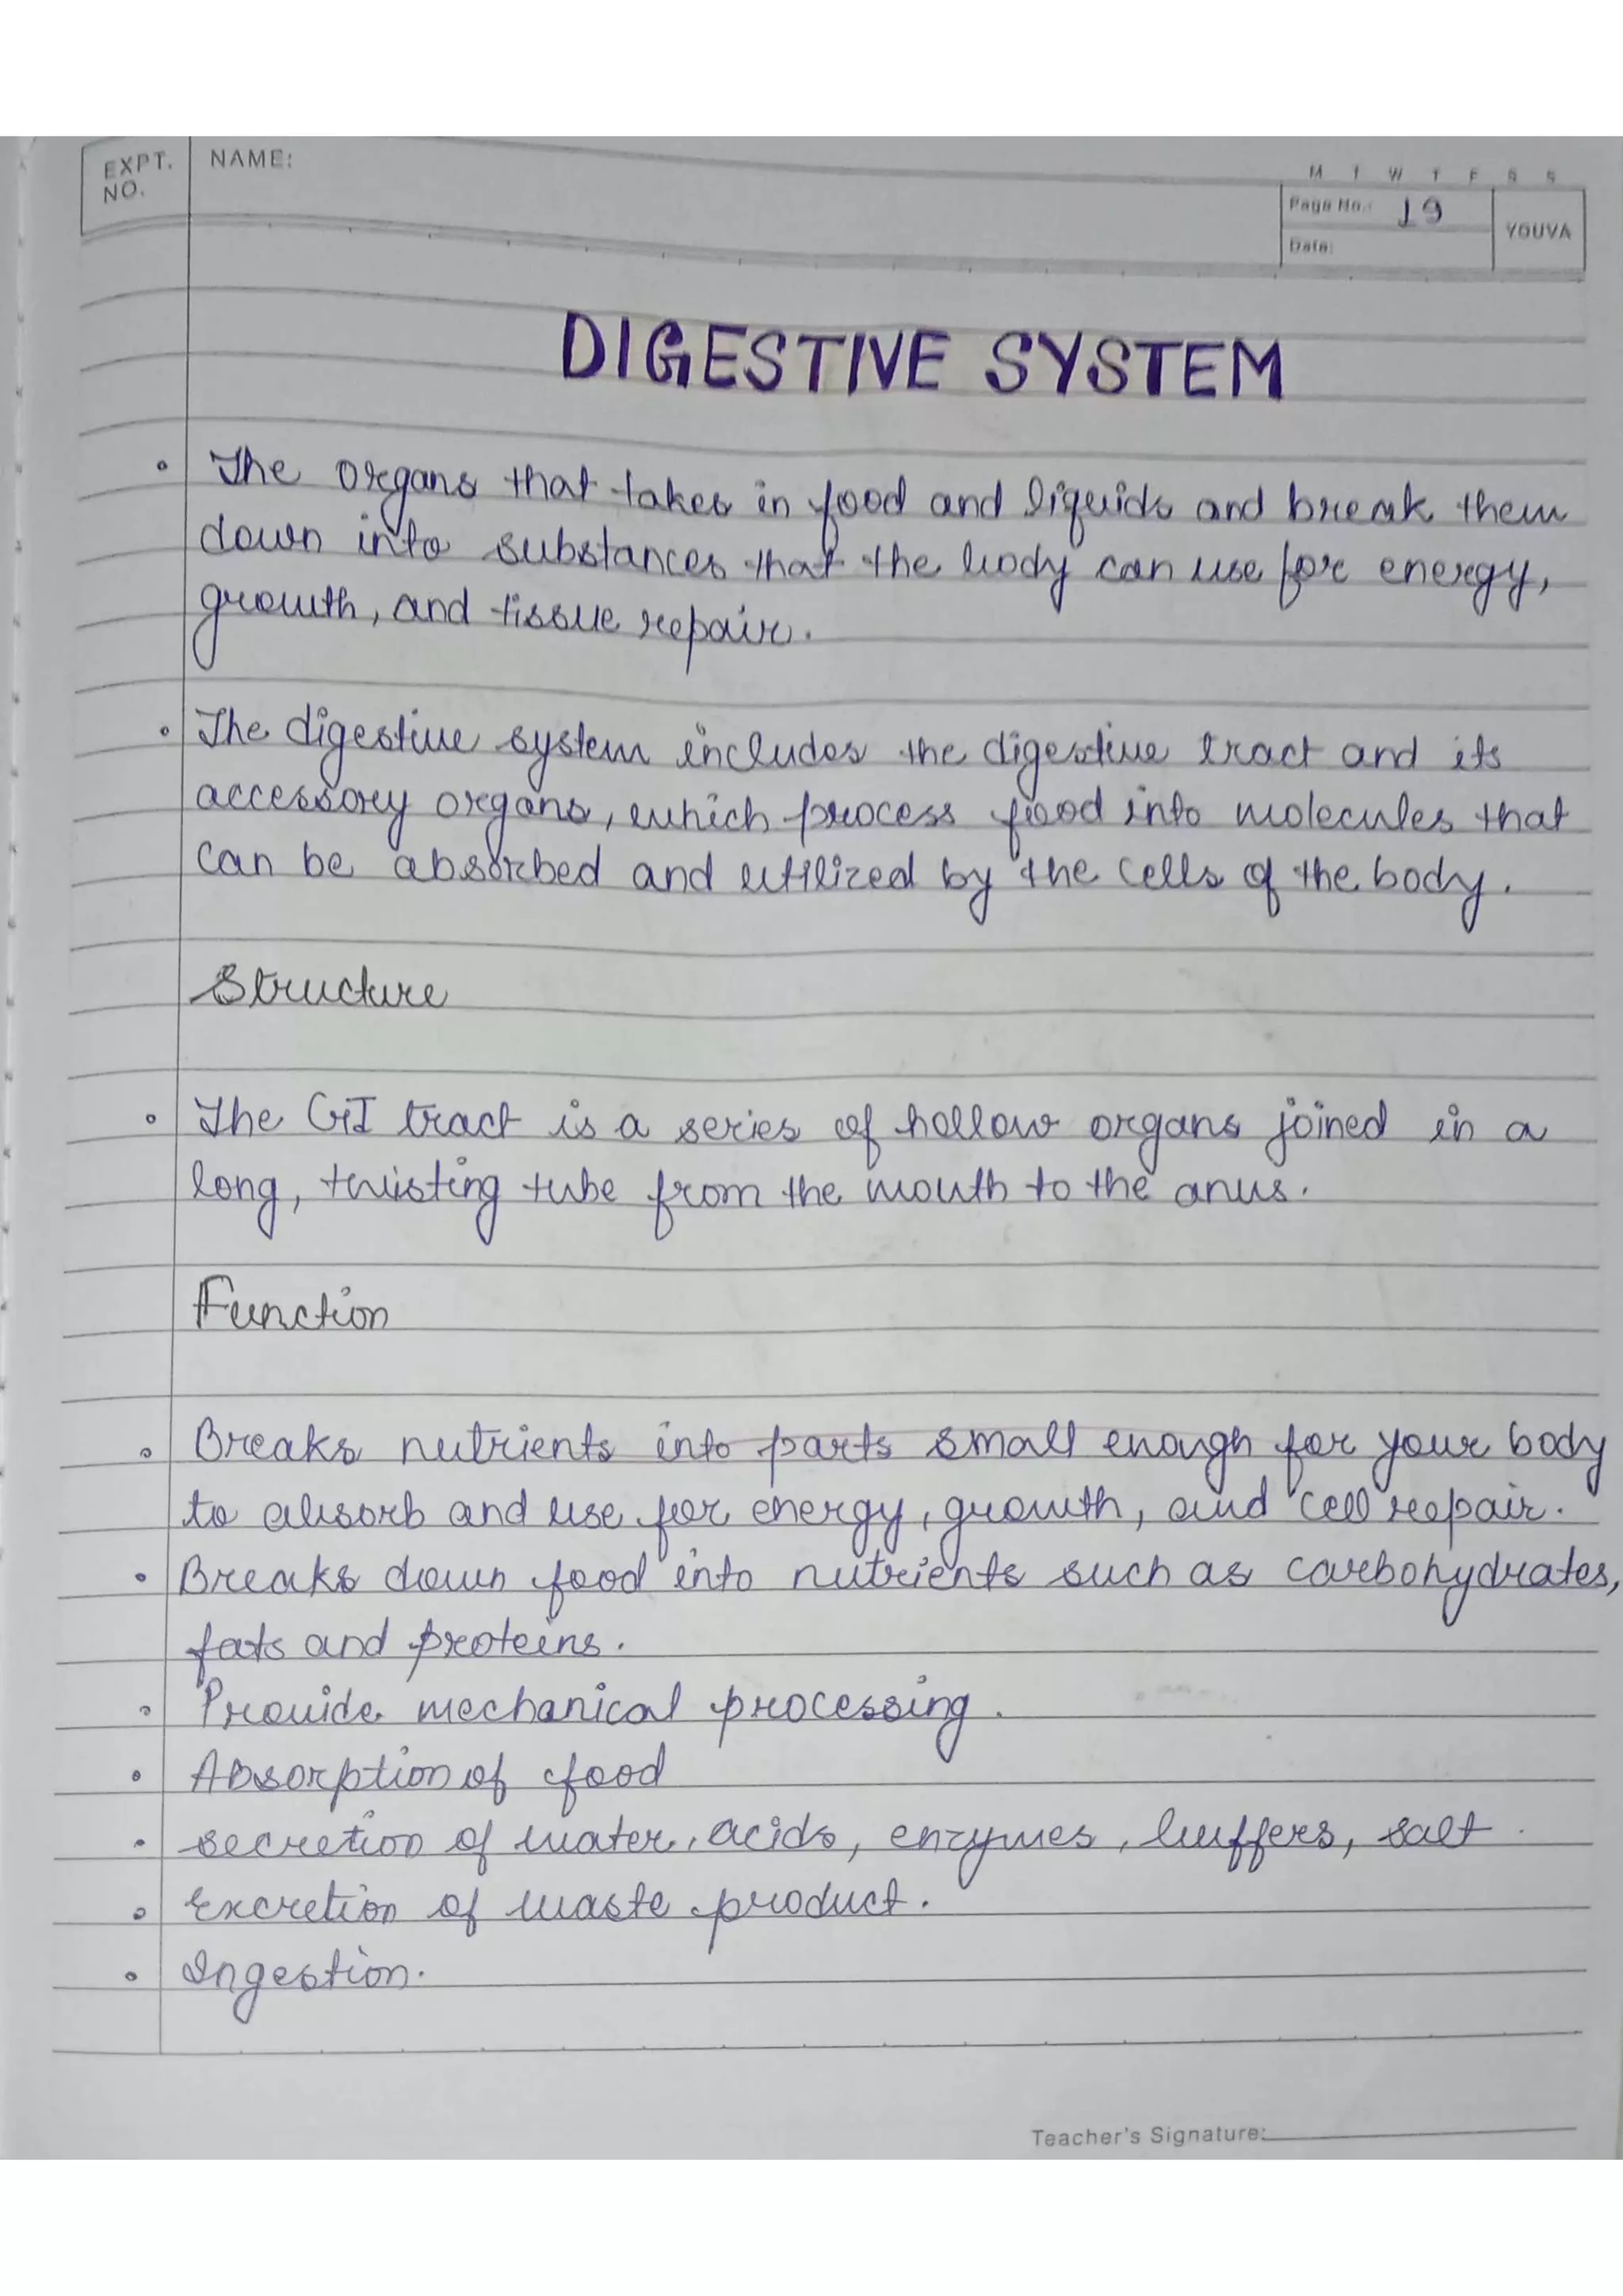 EXPT. NO.
NAME:
M T W T F S S
Page No.: 19
Date:
YOUVA
DIGESTIVE SYSTEM
• The organs that takes in food and liquids and break them
down into substances that the body can use for energy,
growth, and tissue repair.
• The digestive system includes the digestive tract and its
accessory organs, which process food into molecules that
can be absorbed and utilized by the cells of the body.
Structure
• The GI tract is a series of hollow organs joined in a
long, twisting tube from the mouth to the anus.
Function
• Breaks nutrients into parts small enough for your body
to absorb and use for energy, growth, and cell repair.
• Breaks down food into nutrients such as carbohydrates,
fats and proteins.
• Provide mechanical processing.
• Absorption of food
• secretion of water, acids, enzymes, buffers, salt.
• Excretion of waste product.
• Ingestion.
Teacher's Signature: